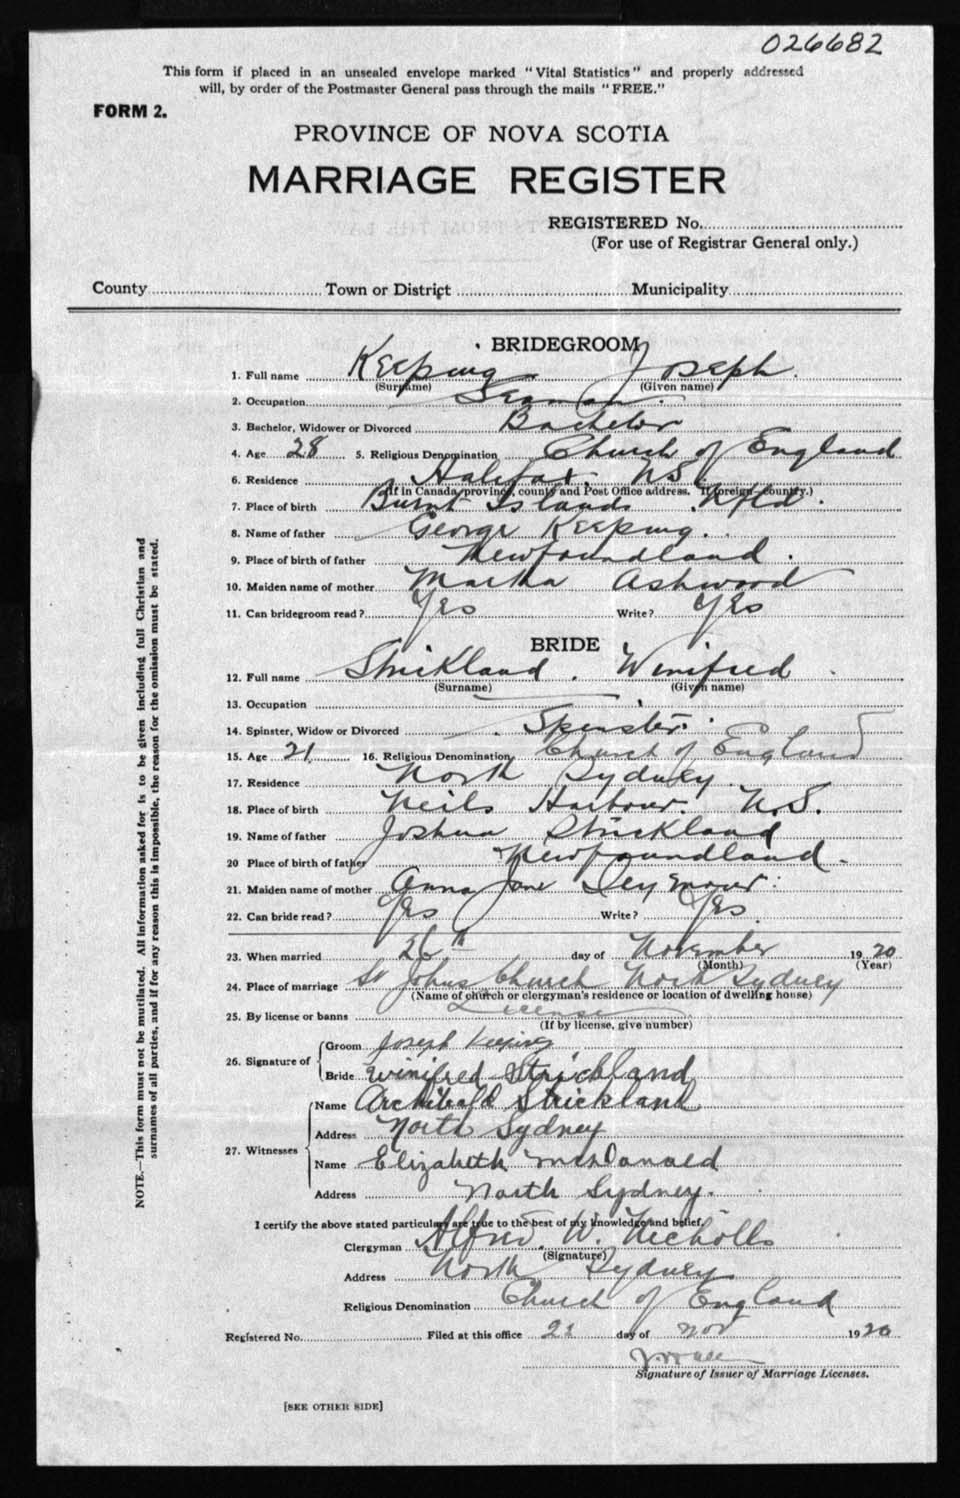 026682
This form if placed in an unsealed envelope marked "Vital Statistics" and properly addressed
will, by order of the Postmaster General pass through the mails "FREE."
FORM 2.
PROVINCE OF NOVA SCOTIA
MARRIAGE REGISTER
REGISTERED No.
(For use of Registrar General only.)
County Town or District Municipality
BRIDEGROOM
1. Full name Keeping Joseph.
(Surname) (Given name)
2. Occupation Seaman.
3. Bachelor, Widower or Divorced Bachelor
4. Age 28 5. Religious Denomination Church of England
6. Residence Halifax, NS
(If in Canada, province, county and Post Office address. If foreign—country.)
7. Place of birth Burnt Islands Nfld.
8. Name of father George Keeping.
9. Place of birth of father Newfoundland.
10. Maiden name of mother Martha Ashwood
11. Can bridegroom read? Yes Write? Yes
BRIDE
12. Full name Strickland. Winifred
(Surname) (Given name)
13. Occupation
14. Spinster, Widow or Divorced Spinster.
15. Age 21 16. Religious Denomination Church of England
17. Residence North Sydney
18. Place of birth Neils Harbour. N.S.
19. Name of father Joshua Strickland
20 Place of birth of father Newfoundland.
21. Maiden name of mother Anna Jane Seymour.
22. Can bride read? Yes Write? Yes.
23. When married 26th day of November 1920
(Month) (Year)
24. Place of marriage St Johns Church North Sydney
(Name of church or clergyman's residence or location of dwelling house)
25. By license or banns License
(If by license, give number)
26. Signature of Groom Joseph Keeping
Bride Winifred Strickland
27. Witnesses Name Archibald Strickland
Address North Sydney
Name Elizabeth McDonald
Address North Sydney.
I certify the above stated particulars are true to the best of my knowledge and belief.
Clergyman Alfred W. Nicholls
(Signature)
Address North Sydney
Religious Denomination Church of England
Registered No. Filed at this office day of Nov 1920
Signature of Issuer of Marriage Licenses.
[SEE OTHER SIDE]
NOTE.—This form must not be mutilated. All information asked for is to be given including full Christian and
surnames of all parties, and if for any reason this is impossible, the reason for the omission must be stated.